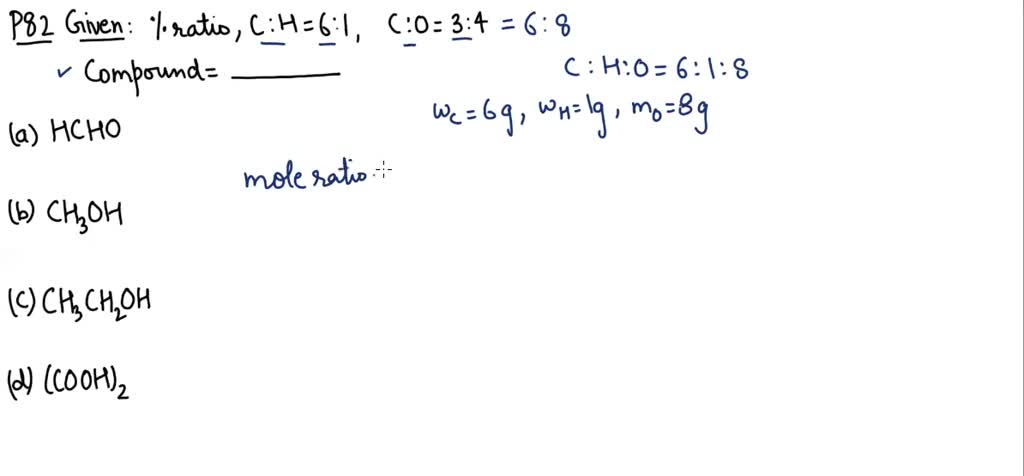 P82 Given: % ratio, C:H = 6:1, C:O = 3:4 = 6:8
✓ Compound = ______
C:H:O = 6:1:8
w_C = 6g, w_H = 1g, m_O = 8g
(a) HCHO
mole ratio
(b) CH₃OH
(c) CH₃CH₂OH
(d) (COOH)₂